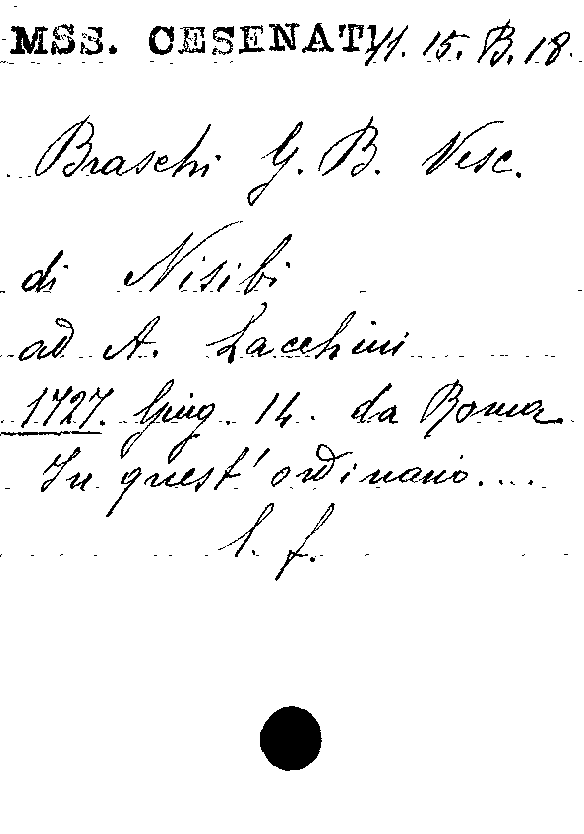 MSS. CESENATI 11. 15. B. 18.
Braschi G. B. Vesc.
di Nisibi
ad A. Lacchini
1727. Giug. 14. da Roma
In quest' ordinario....
l. f.